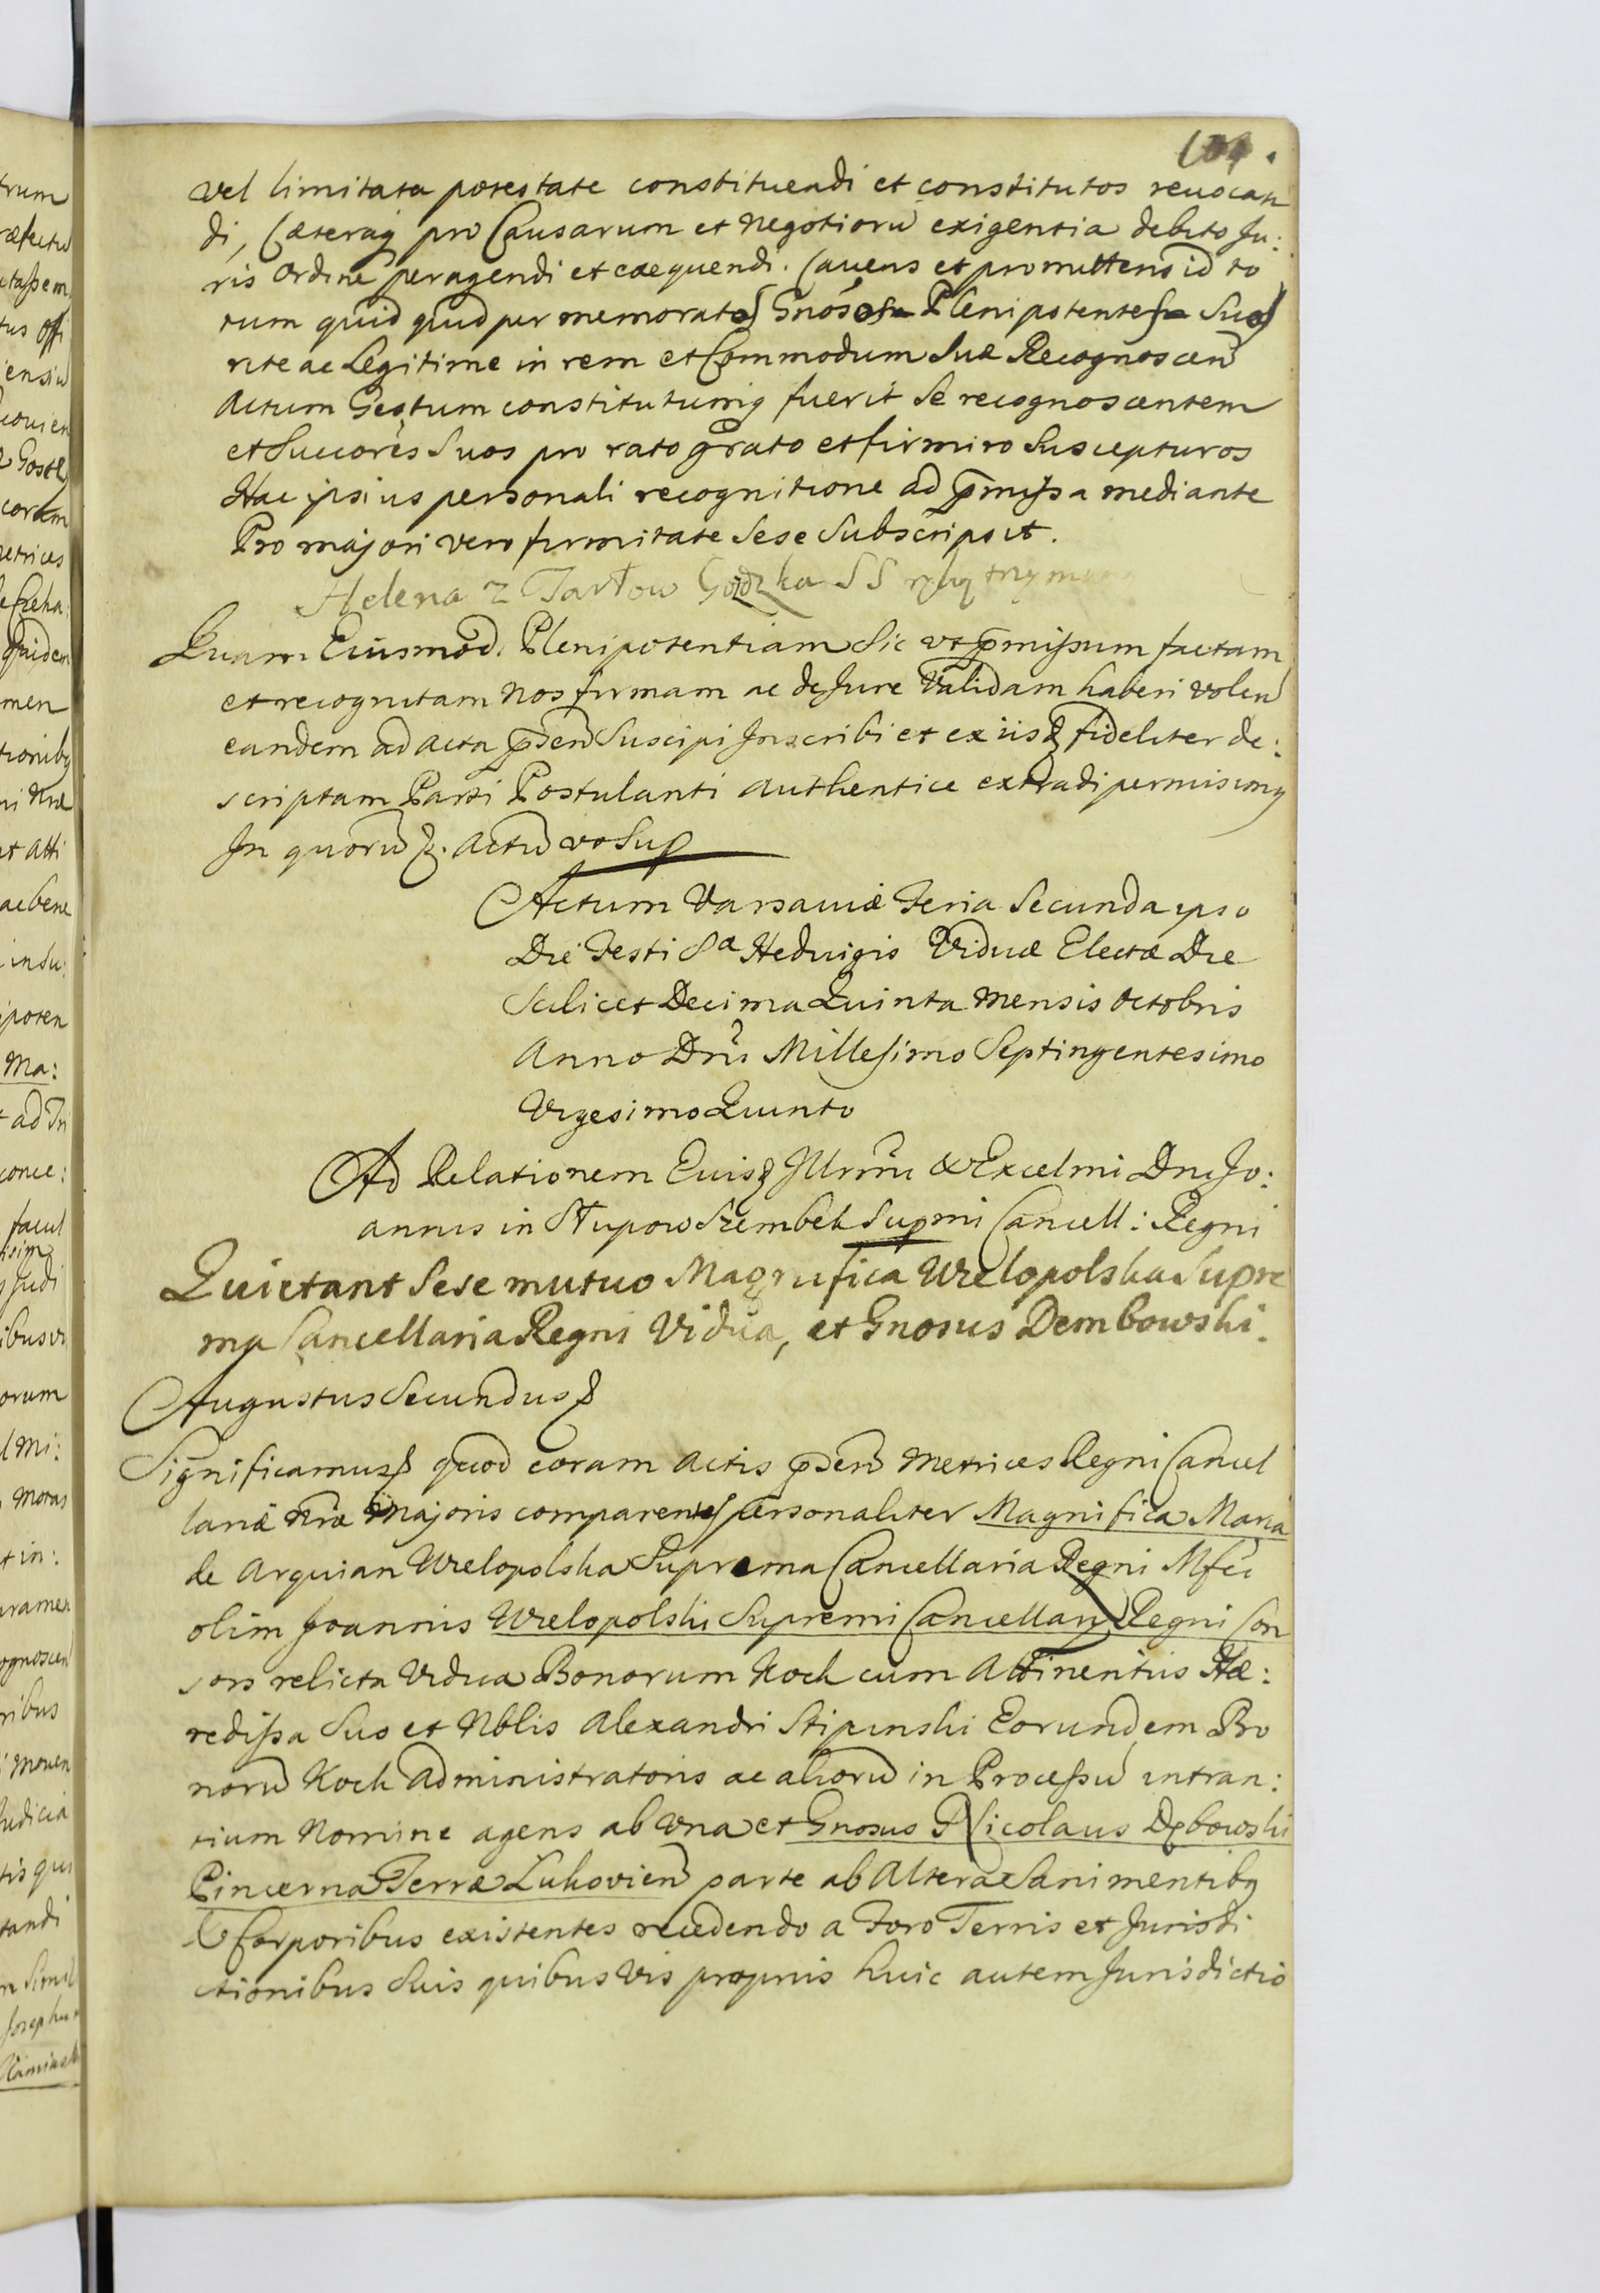 109.
vel limitata potestate constituendi et constitutos revocan
di, Cæteraq pro Causarum et Negotiorū exigentia debito Ju:
ris Ordine peragendi et exequendi. Cavens et promittens id to
tum quid quid per memoratos Gnōsos Plenipotentes Suos
rite ac Legitime in rem et Commodum Suæ Recognoscen
Actum Gestum constitutumq fuerit Se recognoscentem
et Succorēs Suos pro rato grato et firmiro Suscepturos
Hac ipsius personali recognitione ad p̄missa mediante
Pro majori vero firmitate Sese Subscripsit.
Helena z Tarłow Gozdzka SS ręką trzymaną
Quam Eiusmōd. Plenipotentiam Sic vt p̄missum factam
et recognitam Nos firmam ac de Jure Validam haberi volen
eandem ad Acta p̄sen Suscipi Inscribi et ex iisd fideliter de:
scriptam Parti Postulanti authentice extradi permisimq
In quorū &. Actū vt Sup
Actum Varsaviæ Feria Secunda ipso
Die Festi Sæ Hedvigis Viduæ Electæ Die
Scilicet Decima Quinta Mensis Octobris
Anno Dn̄i Millesimo Septingentesimo
Vigesimo Quinto
Ad Relationem Eiusd Illrm̄i & Excelmi Dni Jo:
annis in Słupow Szembek Supmi Cancell: Regni
Quietant Sese mutuo Magnifica Wielopolska Supre
ma Cancellaria Regni Vidua, et Gnosus Dembowski.
Augustus Secundus &
Significamus & quod coram Actis p̄sen Metrices Regni Cancel
lariæ Nr̄æ Majoris comparentes personaliter Magnifica Maria
de Arquian Wielopolska Suprema Cancellaria Regni Mfci
olim Joannis Wielopolski Supremi Cancellarij Regni Con
sors relicta Vidua Bonorum Kock cum Attinentiis Hæ:
redissa Suo et Nblis Alexandri Stipinski Eorundem Bo
norū Kock Administratoris ac aliorū in Processū intran:
tium Nomine agens ab Vna et Gnosus Nicolaus Dębowski
Pincerna Terræ Lukovien parte ab Altera Sani mentibq
& Corporibus existentes recedendo a Foro Terris et Jurisdi
ctionibus Suis quibusvis propriis huic autem Jurisdictio